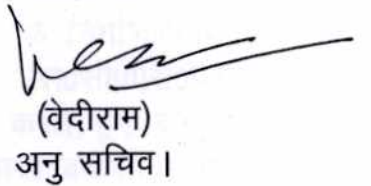 (वेदीराम)
अनु सचिव।